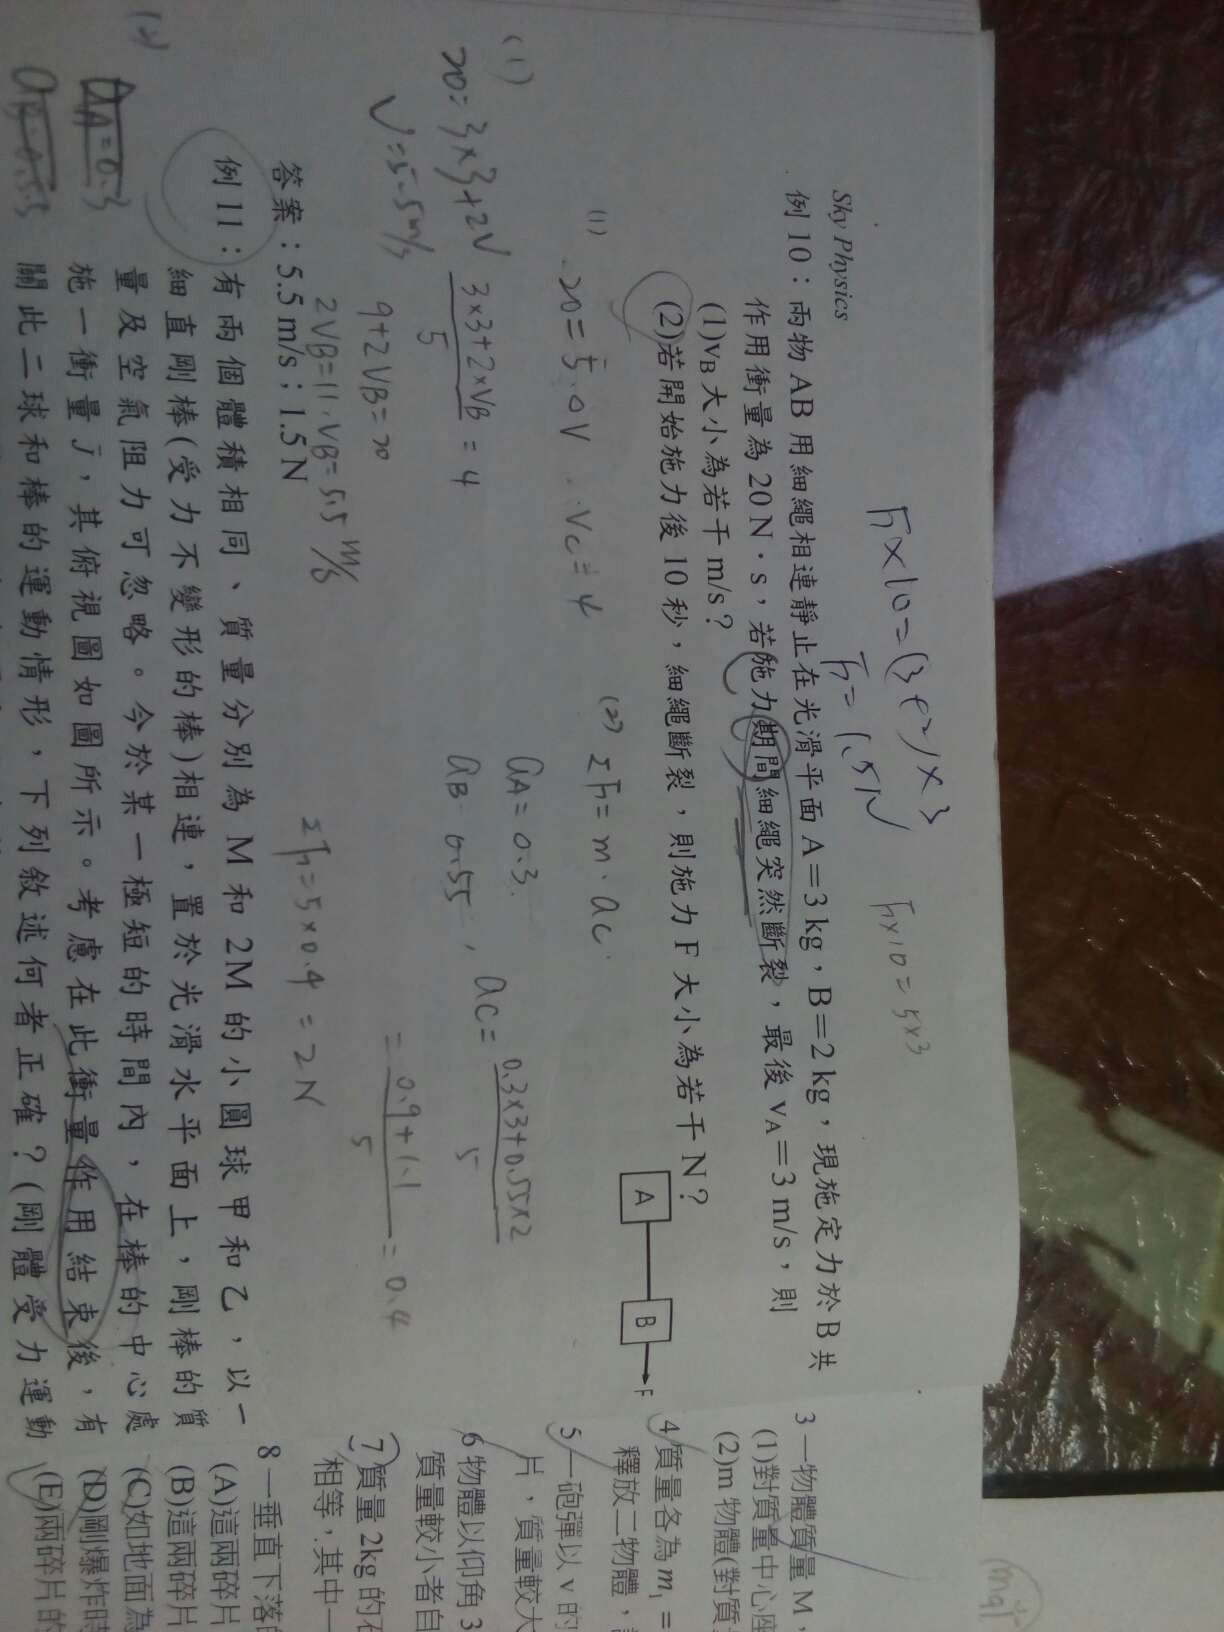 F×10=(3+2)×3
F=1.5N
F×10=5×3
Sky Physics
例10：兩物AB用細繩相連靜止在光滑平面A=3kg，B=2kg，現施定力於B共
作用衝量為20N·s，若施力期間細繩突然斷裂，最後vA=3m/s，則
(1)vB大小為若干m/s？
(2)若開始施力後10秒，細繩斷裂，則施力F大小為若干N？
A
B
F
(1)
20=5·ΔV
∴Vc=4
(2) ΣF=m·ac
aA=0.3
aB=0.55，
ac=0.3×3+0.55×2
5
=0.9+1.1
5
=0.4
ΣF=5×0.4=2N
(1)
20=3×3+2V
V=5.5m/s
3×3+2×VB
5
=4
9+2VB=20
2VB=11，VB=5.5m/s
答案：5.5m/s；1.5N
例11：有兩個體積相同、質量分別為M和2M的小圓球甲和乙，以一
細直剛棒(受力不變形的棒)相連，置於光滑水平面上，剛棒的質
量及空氣阻力可忽略。今於某一極短的時間內，在棒的中心處
施一衝量J，其俯視圖如圖所示。考慮在此衝量作用結束後，有
關此二球和棒的運動情形，下列敘述何者正確？(剛體受力運動
(2)
aA=0.3
3 一物體質量M，
(1)對質量中心座
(2)m物體(對質
4 質量各為m1=
釋放二物體，
5 一砲彈以v的
片，質量較大
6 物體以仰角3
質量較小者自
7 質量2kg的石
相等，其中一
8 一垂直下落的
(A)這兩碎片
(B)這兩碎片
(C)如地面為
(D)剛爆炸時
(E)兩碎片的